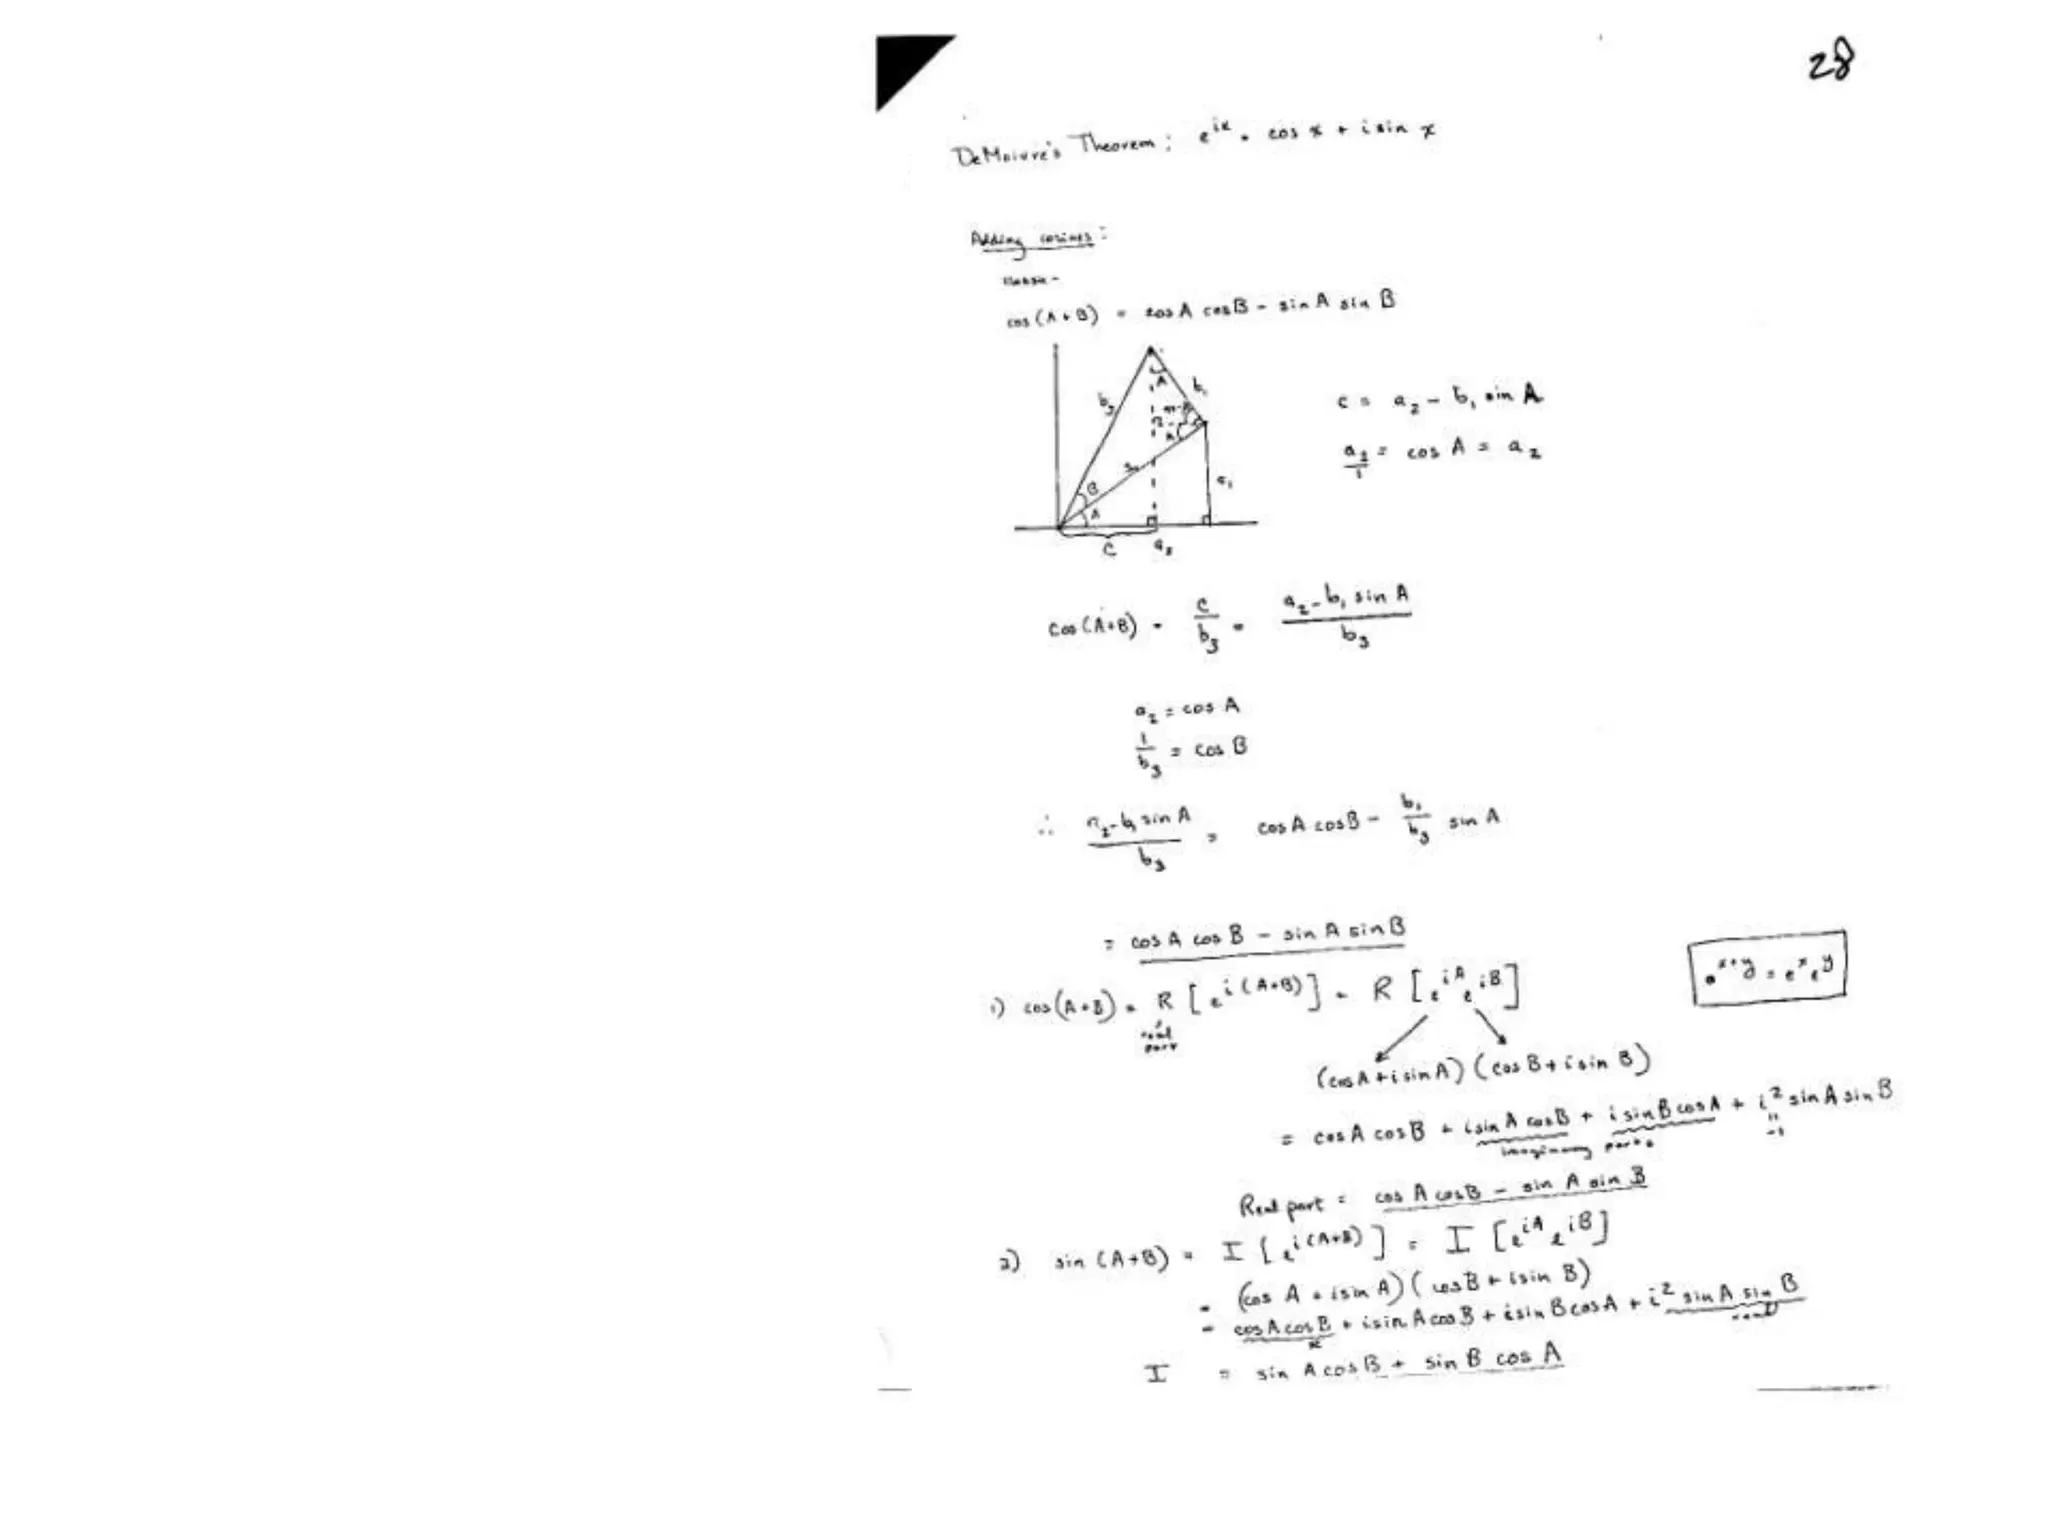 28
DeMoivre's Theorem: e^{ix} = cos x + i sin x
Adding cosines:
classic -
cos (A + B) = cos A cos B - sin A sin B
A b₁
b₃
c = a₂ - b₁ sin A
a₂/1 = cos A = a₂
B
A
a₁
C a₂
cos (A+B) = c/b₃ = (a₂ - b₁ sin A)/b₃
a₂ = cos A
1/b₃ = cos B
∴ (a₂ - b₁ sin A)/b₃ = cos A cos B - b₁/b₃ sin A
= cos A cos B - sin A sin B
e^{x+y} = e^x e^y
1) cos (A+B) = R [e^{i(A+B)}] = R [e^{iA} e^{iB}]
real
part
(cos A + i sin A) (cos B + i sin B)
= cos A cos B + i sin A cos B + i sin B cos A + i² sin A sin B
imaginary parts
" -1
Real part = cos A cos B - sin A sin B
2) sin (A+B) = I [e^{i(A+B)}] = I [e^{iA} e^{iB}]
= (cos A + i sin A) (cos B + i sin B)
= cos A cos B + i sin A cos B + i sin B cos A + i² sin A sin B
real
I = sin A cos B + sin B cos A